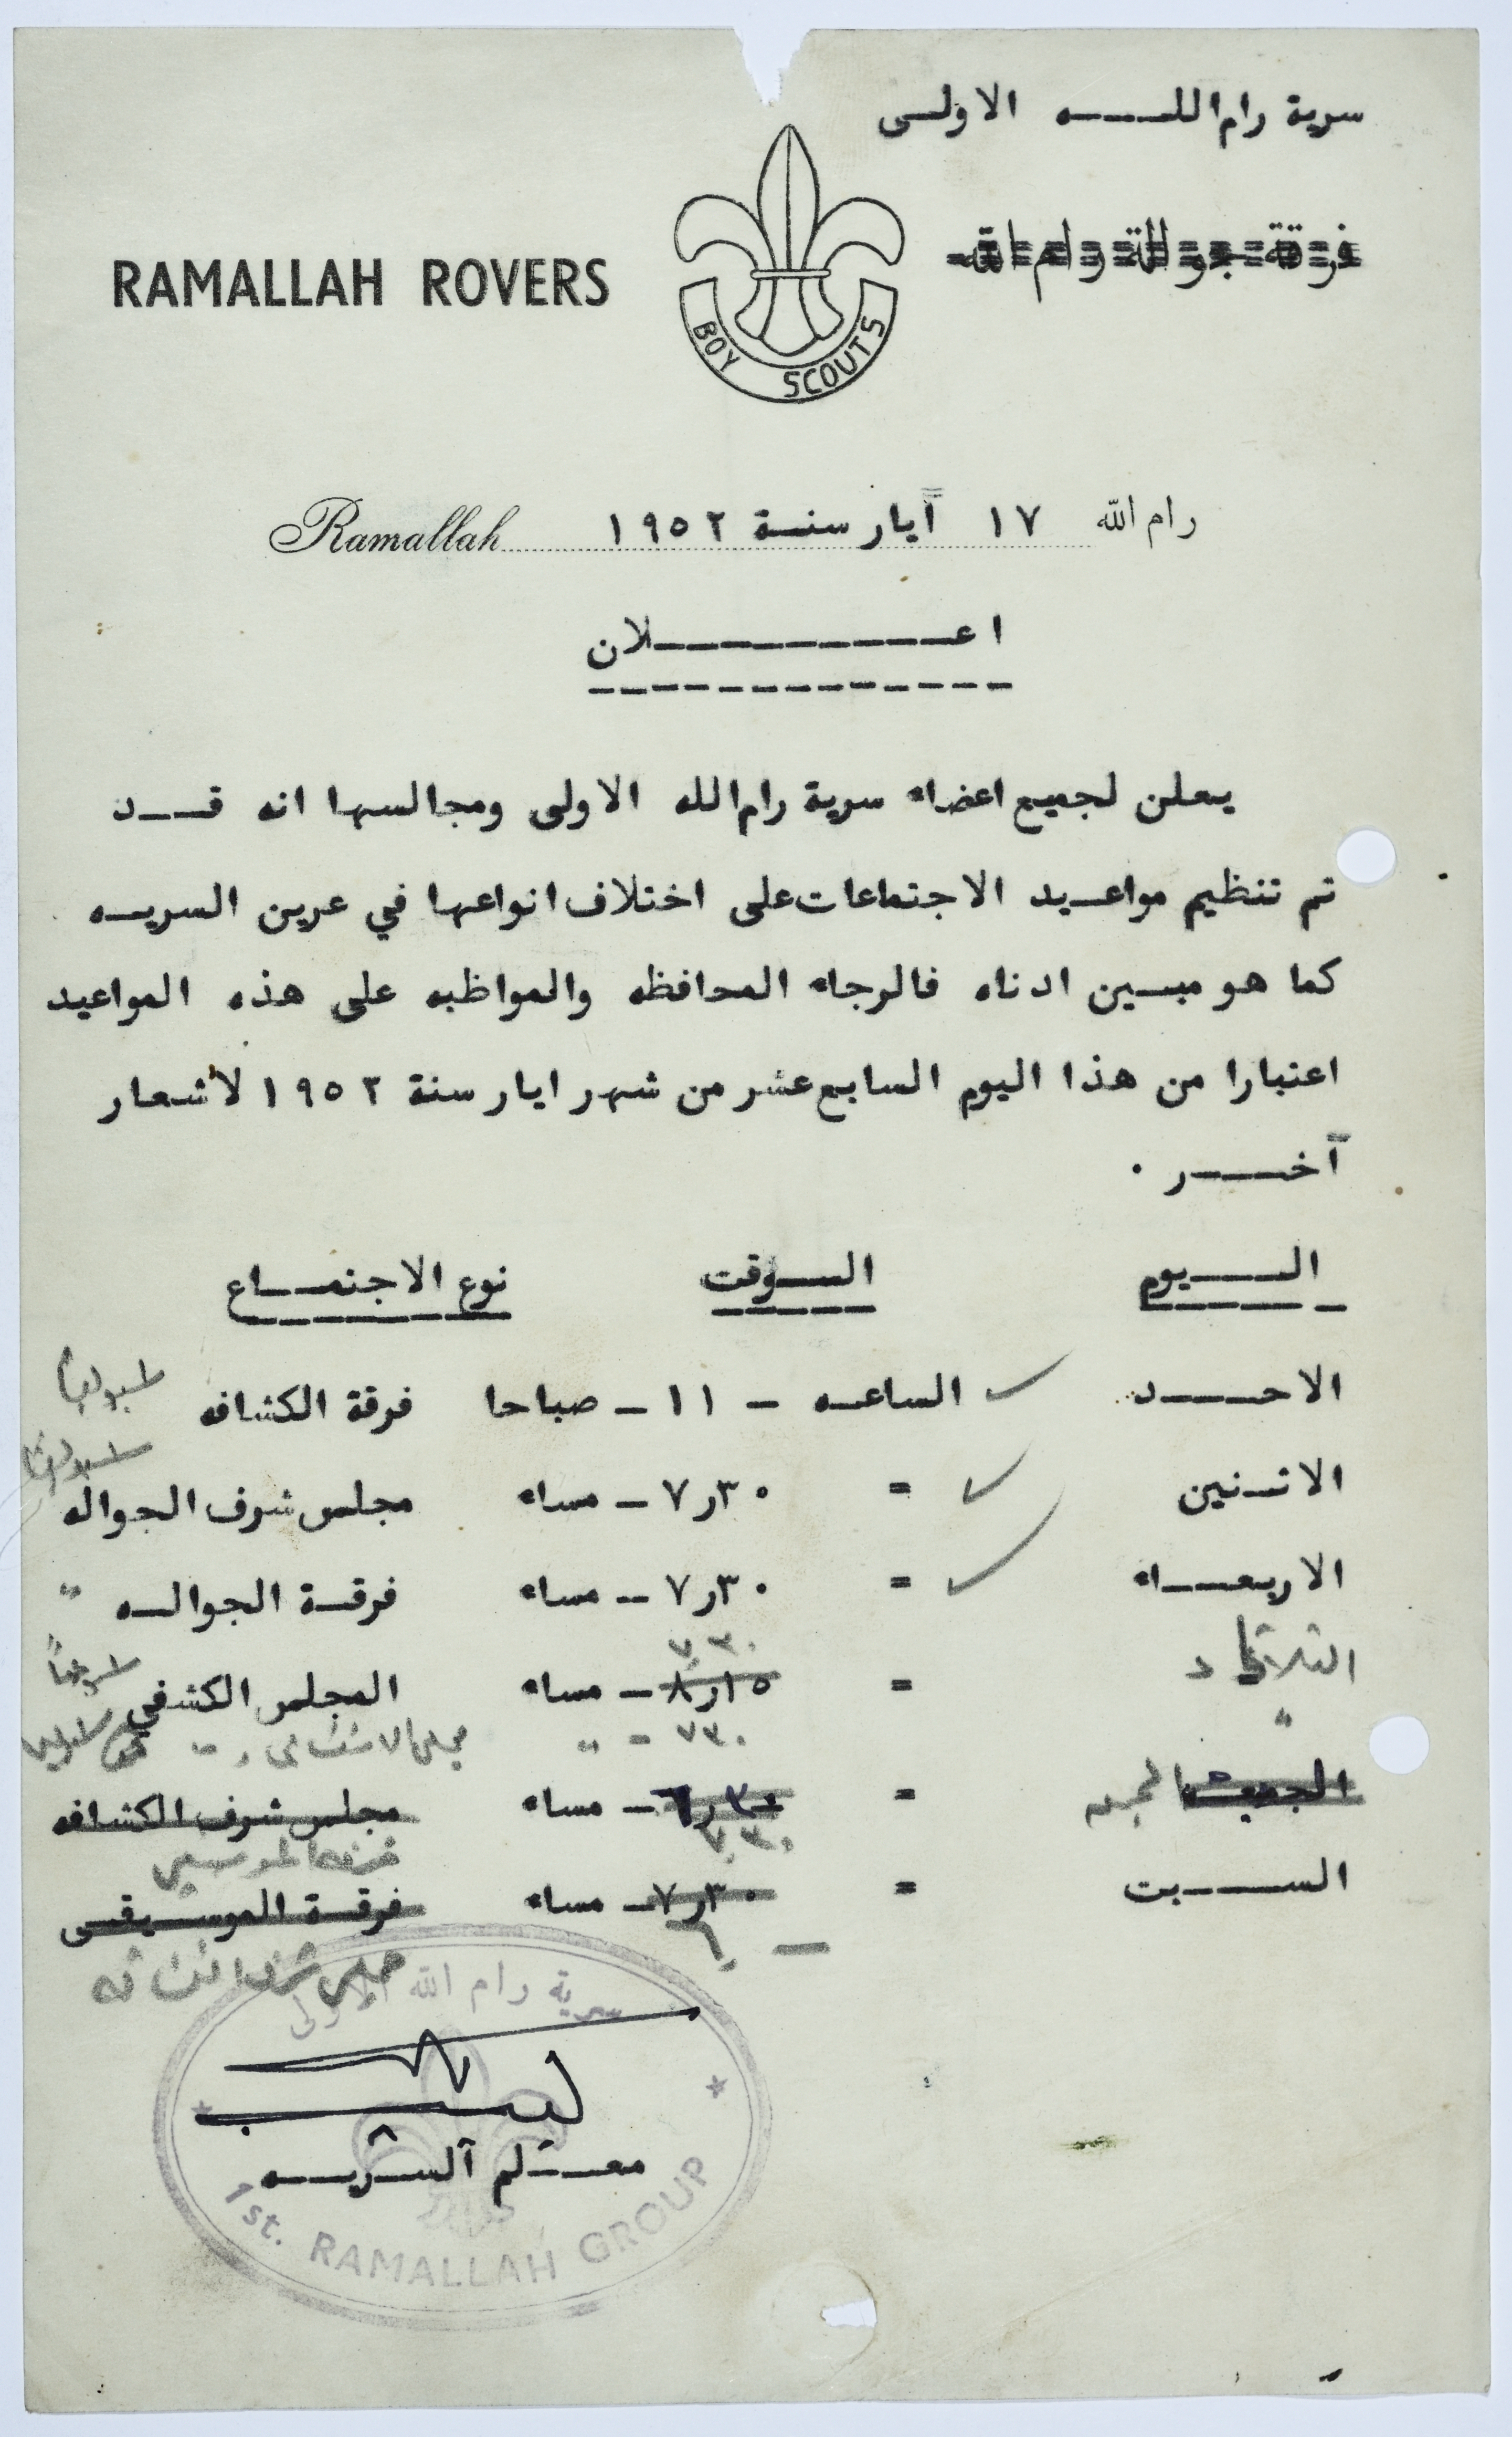 سرية رام اللـــه الاولــى
فرقة جوالة رام الله
RAMALLAH ROVERS
BOY SCOUTS
رام الله ١٧ آيار سنـة ١٩٥٢ Ramallah
اعـــــــــلان
يعلن لجميع اعضاء سرية رام الله الاولى ومجالسها انه قــد
تم تنظيم مواعـيد الاجتماعات على اختلاف انواعها في عرين السريـه
كما هو مبـين ادناه فالرجاء المحافظه والمواظبه على هذه المواعيد
اعتبارا من هذا اليوم السابع عشر من شهر ايار سنة ١٩٥٢ لأشعار
آخـــر ٠
اليـــوم الـــوقت نوع الاجتمــاع
الاحـــد الساعـه - ١١ - صباحا فرقة الكشافه
الاثـنين = ٧٫٣٠ - مساء مجلس شرف الجواله
الاربعــاء = ٧٫٣٠ - مساء فرقـة الجوالـه "
٧٫٣٠
الثلاثاء = ٨٫١٥ - مساء المجلس الكشفي
" ٧٣٠ = "
الجمعـة = ٦٫٣٠ - مساء مجلس شرف الكشافه
٧٫٣٠
الســـبت = ٧٫٣٠ - مساء فرقـة الموسـيقـى
سرية رام الله الاولى
معـتلم السريــه
1st. RAMALLAH GROUP